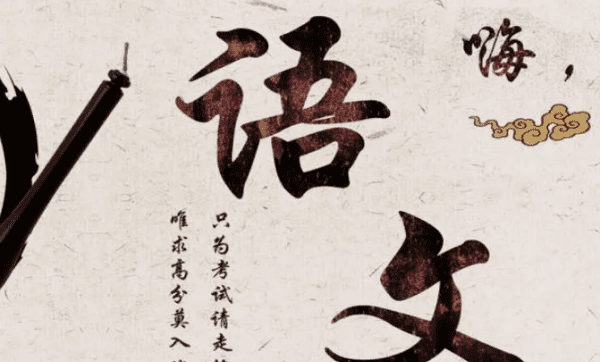 嗨，
语
文
只为考试请走
唯求高分莫入